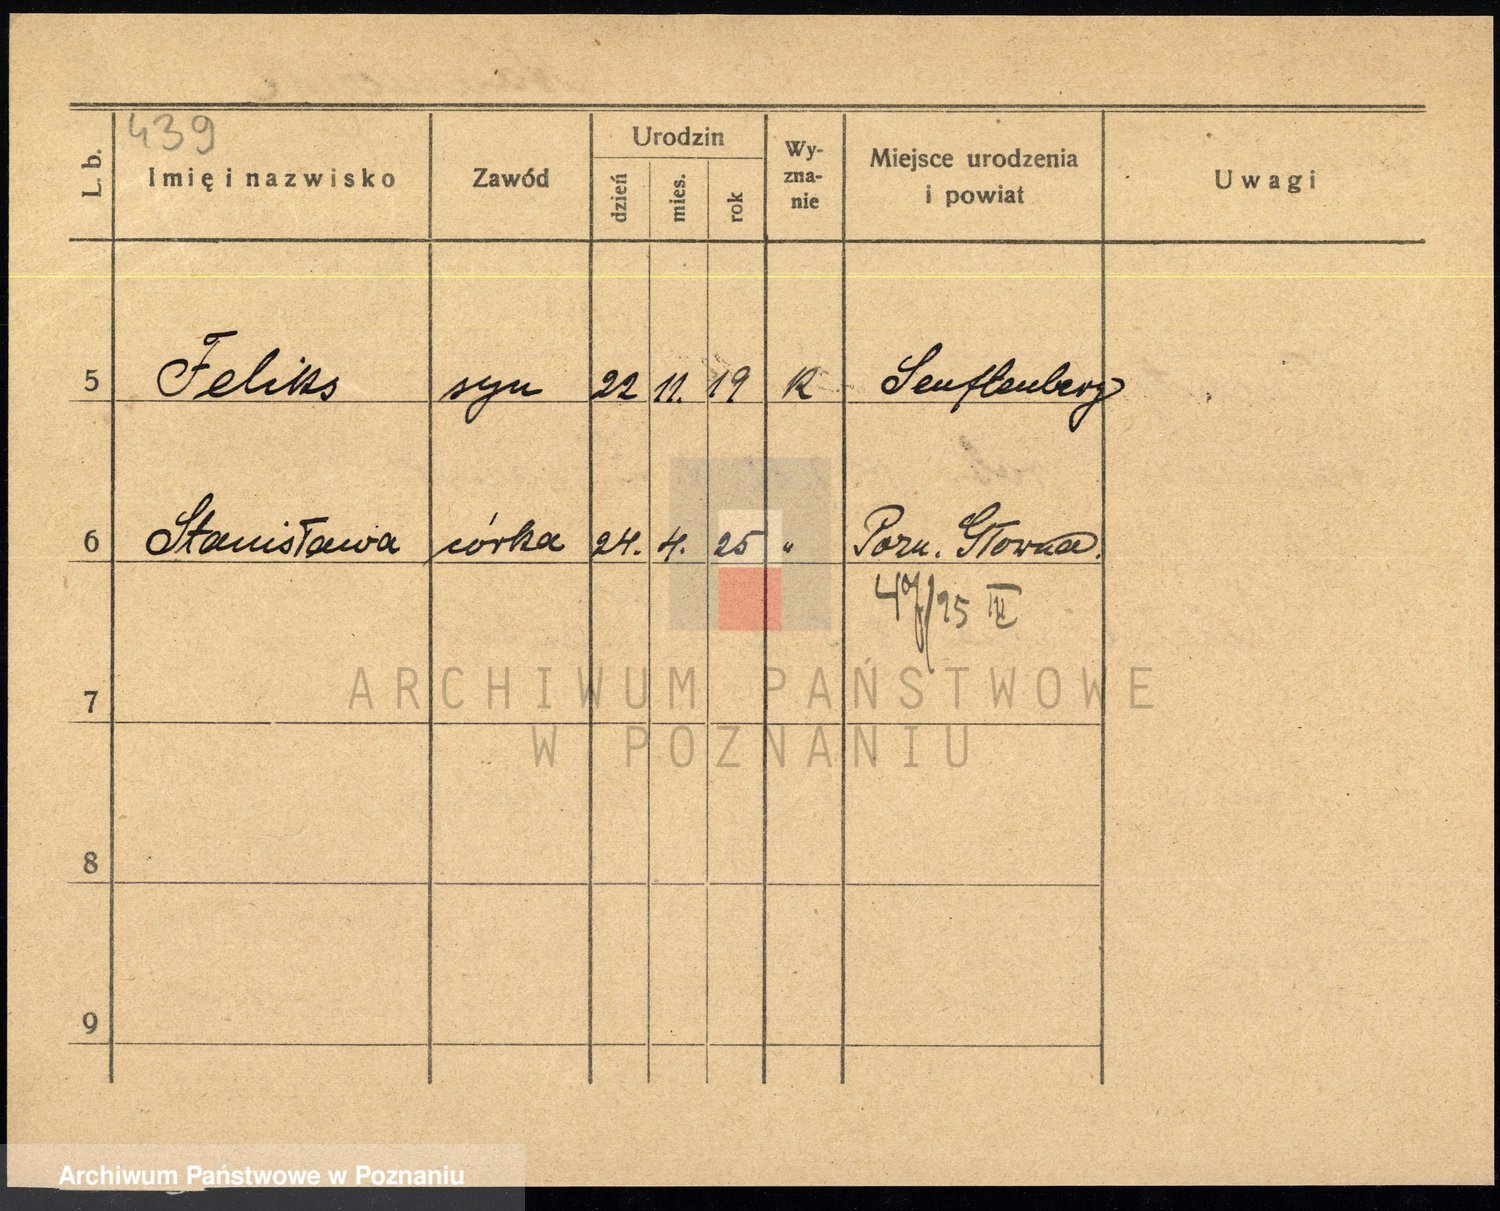 439
L. b.
Imię i nazwisko
Zawód
Urodzin
dzień
mies.
rok
Wy-
zna-
nie
Miejsce urodzenia
i powiat
Uwagi
5 Feliks syn 22 11. 19 K Senftenberg
6 Stanisława córka 24. 4. 25 " Pozn. Głowna.
7
8
9
ARCHIWUM PAŃSTWOWE
W POZNANIU
Archiwum Państwowe w Poznaniu